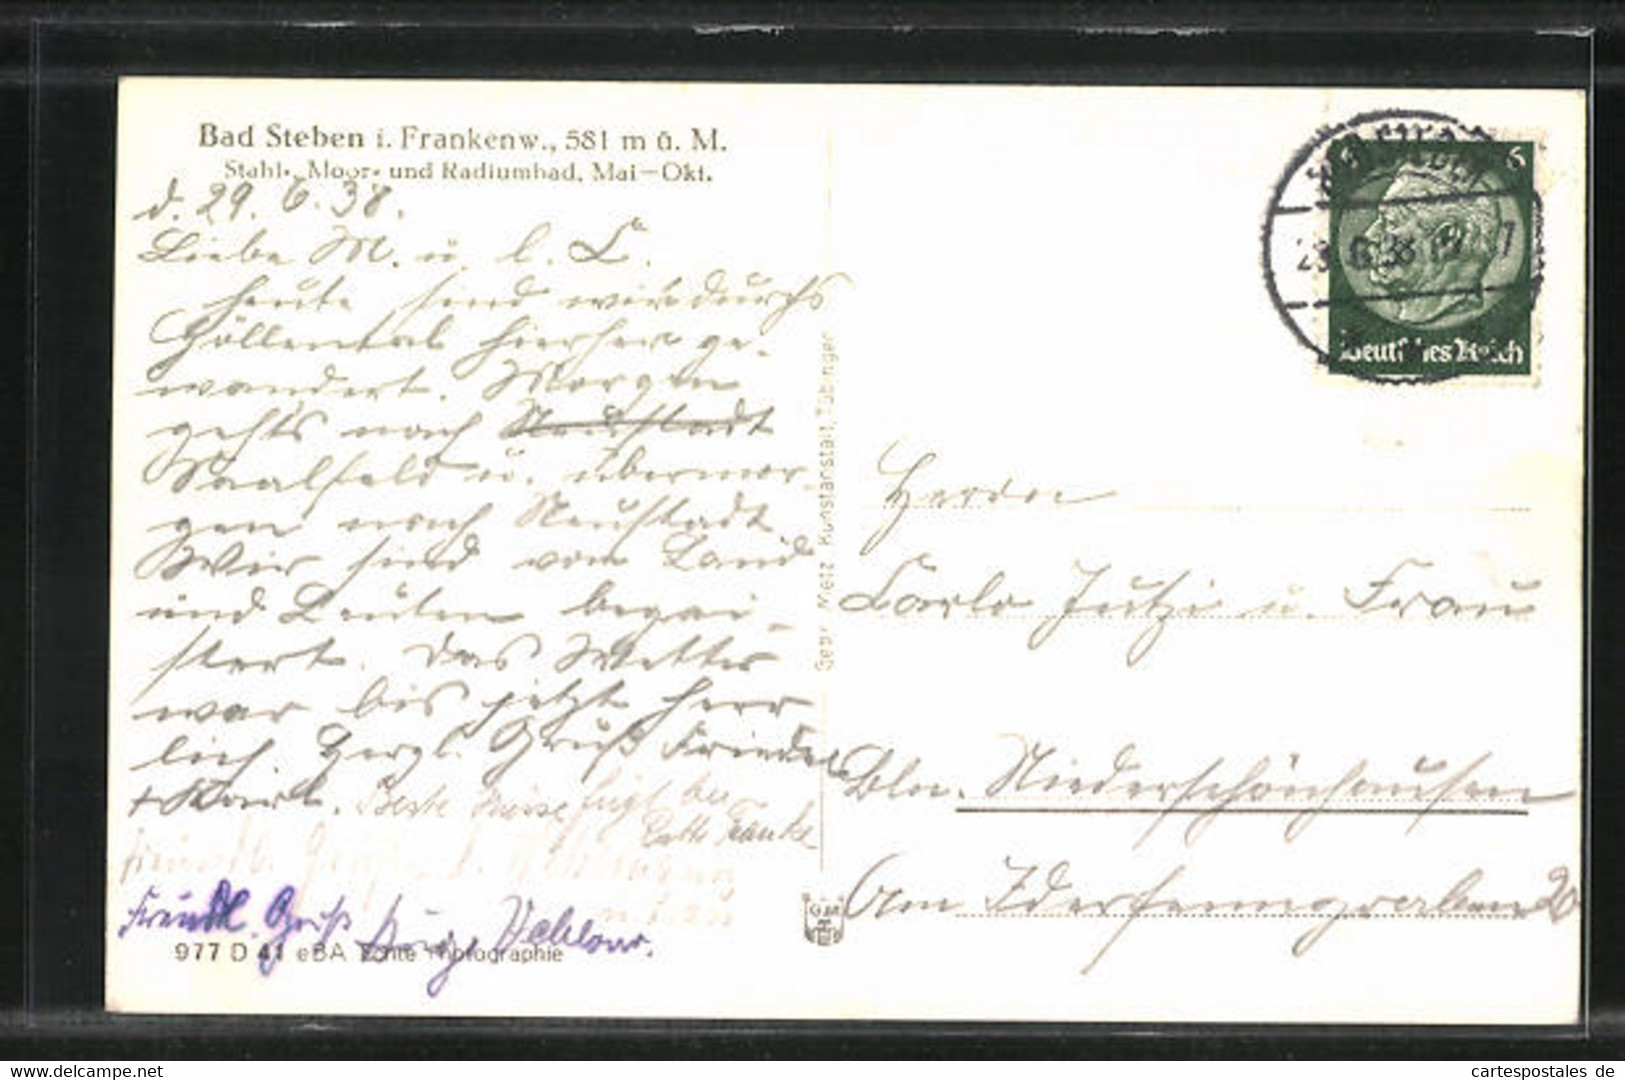 Bad Steben i. Frankenw., 581 m ü. M.
Stahl-, Moor- und Radiumbad, Mai—Okt.
d. 29. 6. 38.
Liebe M. u. l. C.
heute sind wir durchs
Höllental hierher ge-
wandert. Morgen
gehts nach Neustadt
Saalfeld u. übermor-
gen nach Neustadt
Wir sind von Land
und Leuten begei-
stert. Das Wetter
war bis jetzt herr
lich. Herzl. Gruß Friedel
+ Karl. Beste Grüsse fügt bei
Franke
Freundl. Grüße
Freundl. Gruß
977 D 41 eBA Echte Photographie
Gebr. Metz Kunstanstalt, Tübingen
GMT
6
Deutsches Reich
Herrn
Carlo Jutzi u. Frau
Bln. Niederschönhausen
Am Iderfenngraben 20
cartespostales de
www.cartespostales.de